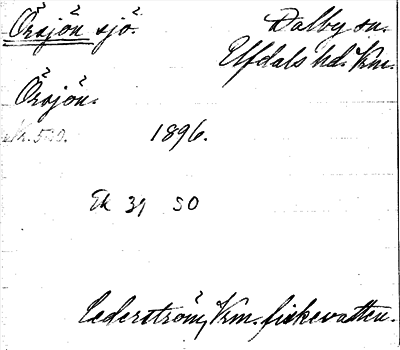 Örsjön sjö.
Dalby sn.
Elfdals hd. Vrm.
Örsjön.
1896.
Ek 39 SO
Cederström, Vrm. fiskevatten.